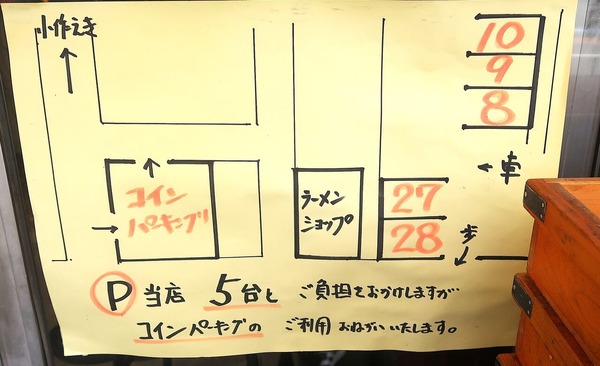 小作えき
↑
10
9
8
← 車
コイン
パーキング
ラーメン
ショップ
27
28
歩
P 当店 5台と ご負担をおかけしますが
コインパーキングの ご利用 おねがいいたします。